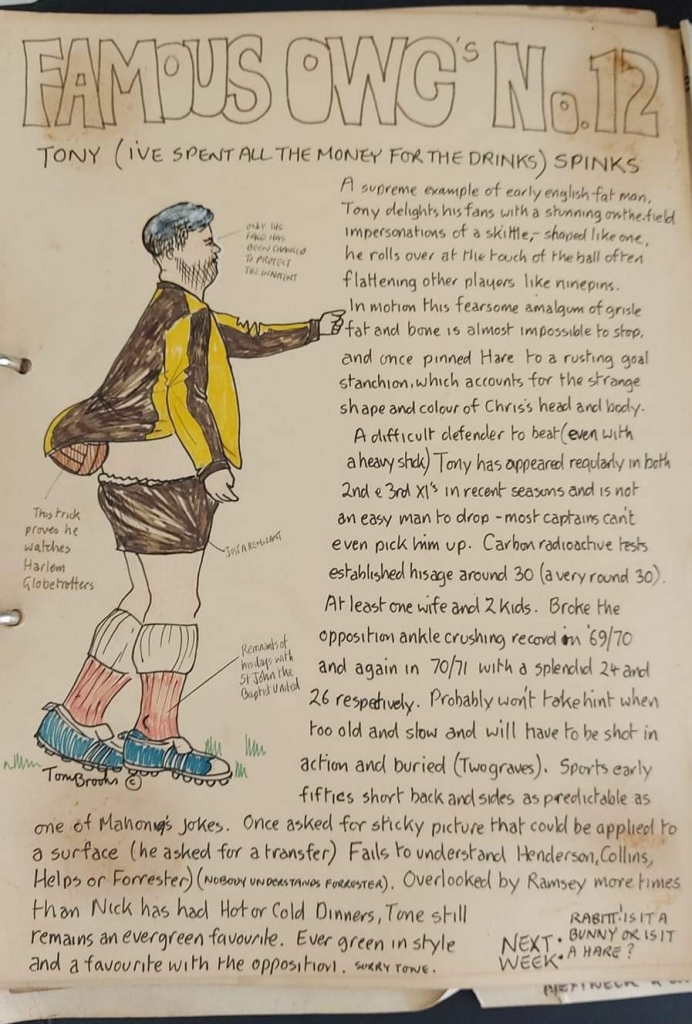 FAMOUS OWG'S No.12
TONY (I'VE SPENT ALL THE MONEY FOR THE DRINKS) SPINKS
A supreme example of early english fat man.
Tony delights his fans with a stunning on-the-field
impersonations of a skittle,- shaped like one,
he rolls over at the touch of the ball often
flattening other players like ninepins.
In motion this fearsome amalgum of grisle
fat and bone is almost impossible to stop.
and once pinned Hare to a rusting goal
stanchion, which accounts for the strange
shape and colour of Chris's head and body.
A difficult defender to beat (even with
a heavy stick) Tony has appeared regularly in both
2nd & 3rd XI's in recent seasons and is not
an easy man to drop - most captains can't
even pick him up. Carbon radioactive tests
established his age around 30 (a very round 30).
At least one wife and 2 kids. Broke the
opposition ankle crushing record in '69/70
and again in 70/71 with a splendid 24 and
26 respectively. Probably won't take hint when
too old and slow and will have to be shot in
action and buried (Two graves). Sports early
fifties short back and sides as predictable as
one of Mahony's jokes. Once asked for sticky picture that could be applied to
a surface (he asked for a transfer) Fails to understand Henderson, Collins,
Helps or Forrester) (NOBODY UNDERSTANDS FORRESTER). Overlooked by Ramsey more times
than Nick has had Hot or Cold Dinners, Tone still
remains an evergreen favourite. Ever green in style
and a favourite with the opposition. SORRY TONE.
ONLY THE
FACE HAS
BEEN CHANGED
TO PROTECT
THE INNOCENT
This trick
proves he
watches
Harlem
Globetrotters
JUST A REMNANT
Remnants of
his days with
St John the
Baptist United
Tom Brooks ©
NEXT
WEEK:
RABITT: IS IT A
BUNNY OR IS IT
A HARE?